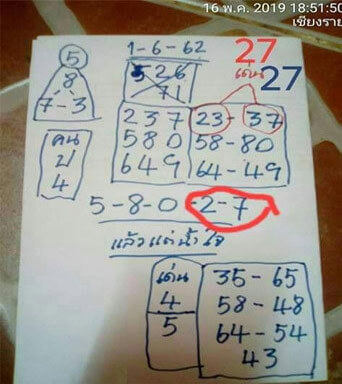 16 พ.ค. 2019 18:51:50
เชียงราย
1-6-62
27
เด่น
27
5
8
7-3
526
71
237
580
649
23-37
58-80
64-49
คน
ป
4
5-8-0-2-7
แล้วแต่น้ำใจ
เด่น
4
5
35-65
58-48
64-54
43